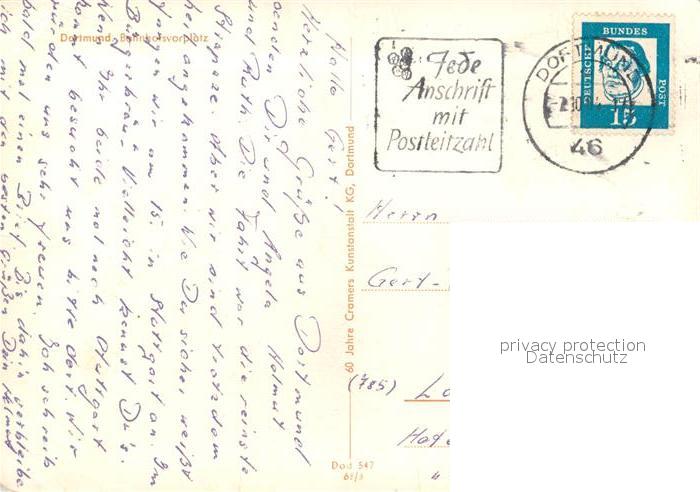 Dortmund, Bahnhofsvorplatz
Jede
Anschrift
mit
Postleitzahl
DORTMUND
46
DEUTSCHE
BUNDES
POST
15
Hallo Gert!
Herzliche Grüße aus Dortmund
senden Dir und Angela Helmut
und Ruth. Die Fahrt war die reinste
Strapaze. Aber wir sind trotzdem
her angekommen. Wie Du sicher weißt
wir am 15. in Stuttgart an. Im
Bürgerbräu. Vielleicht kennst Du's.
Ihr beide mal nach Stuttgart
kommt besucht uns bitte dort. Wir
würden uns sehr freuen. Ich schreib
bald mal einen Brief. Bis dahin verbleibe
ich mit den besten Grüßen Dein Helmut
60 Jahre Cramers Kunstanstalt KG, Dortmund
Herrn
Gert-
(785) La
"
Dod 547
privacy protection
Datenschutz